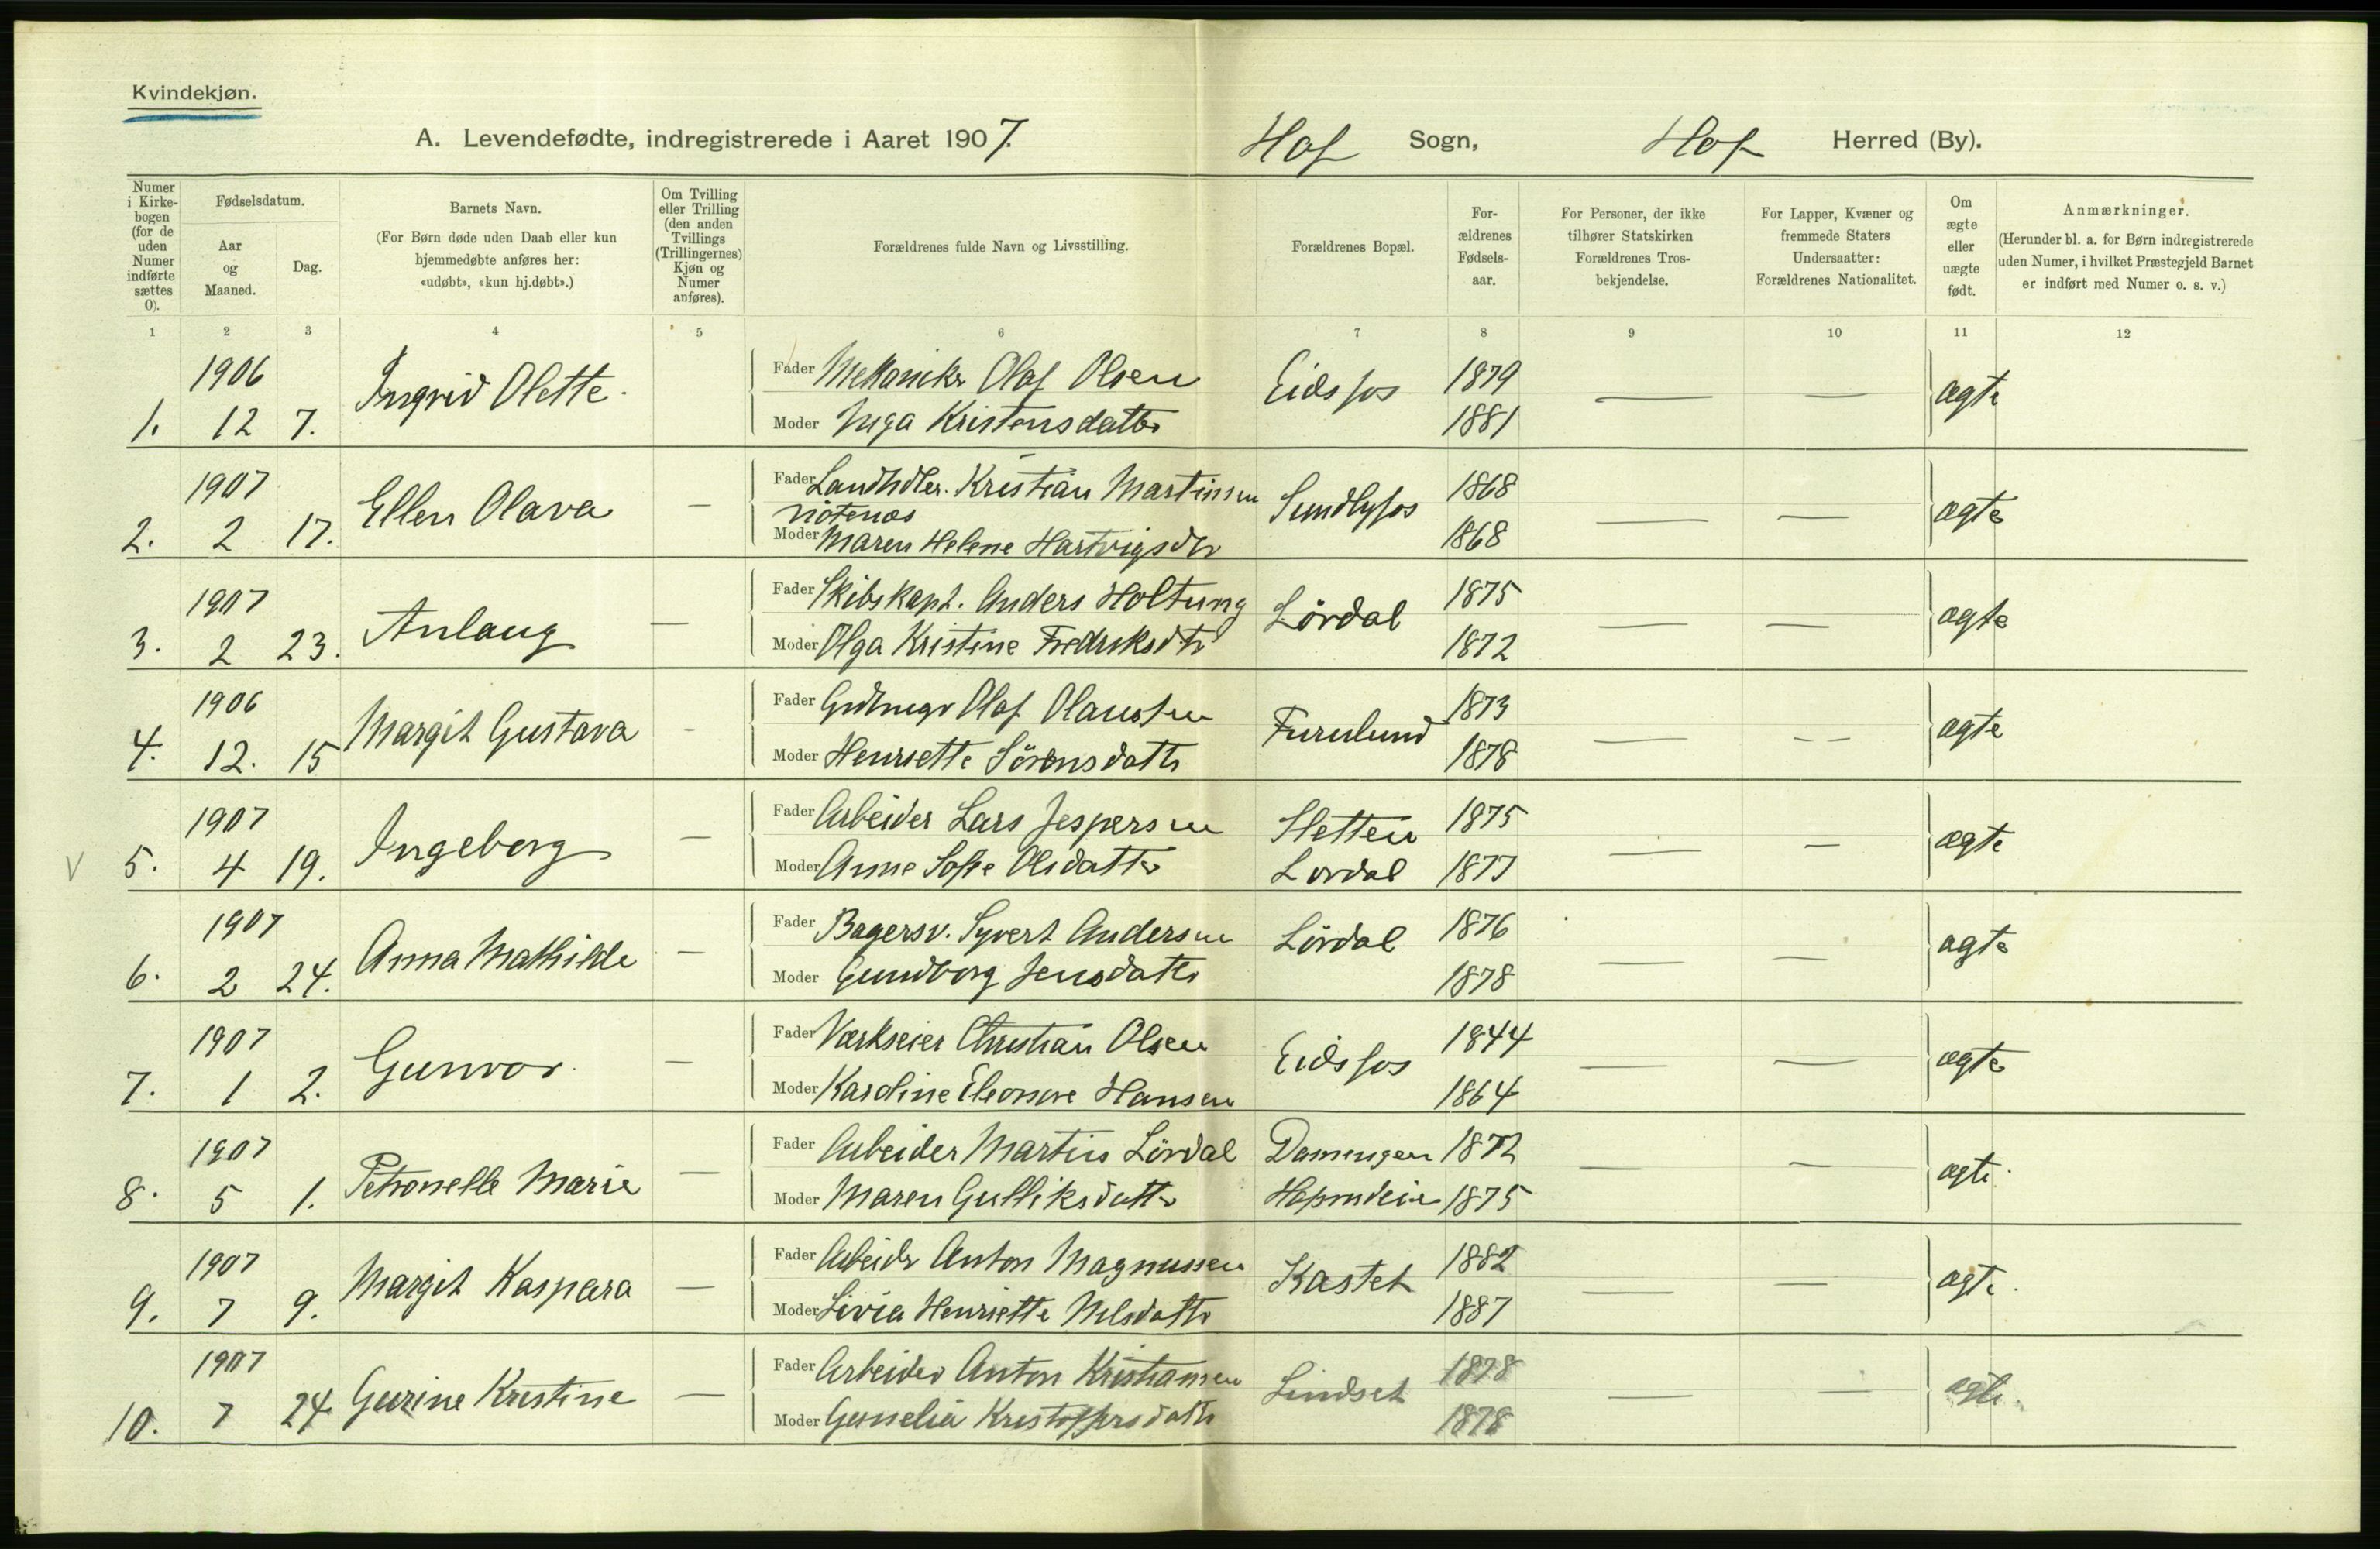 Kvindekjøn.
A. Levendefødte, indregistrerede i Aaret 1907. Hof Sogn, Hof Herred (By).
Numer i Kirkebogen (for de uden Numer indførte sættes 0).
Fødselsdatum.
Aar og Maaned.
Dag.
Barnets Navn.
(For Børn døde uden Daab eller kun hjemmedøbte anføres her: «udøbt», «kun hj.døbt».)
Om Tvilling eller Trilling (den anden Tvillings (Trillingernes) Kjøn og Numer anføres).
Forældrenes fulde Navn og Livsstilling.
Forældrenes Bopæl.
For-ældrenes Fødsels-aar.
For Personer, der ikke tilhører Statskirken Forældrenes Tros-bekjendelse.
For Lapper, Kvæner og fremmede Staters Undersaatter: Forældrenes Nationalitet.
Om ægte eller uægte født.
Anmærkninger.
(Herunder bl. a. for Børn indregistrerede uden Numer, i hvilket Præstegjeld Barnet er indført med Numer o. s. v.)
1 2 3 4 5 6 7 8 9 10 11 12
1906 Ingrid Olette. Fader Mekaniker Olaf Olsen Eidsfos 1879 — — ægte
1. 12 7. Moder Inga Kristensdatter 1881
1907 Ellen Olava — Fader Landhdler. Kristian Martinsen Sundbyfos 1868 — — ægte
2. 2 17. Moder Maren Helene Hartvigsdtr 1868
1907 Anlaug — Fader Skibskapt. Anders Holtung Lördal 1875 — — ægte
3. 2 23. Moder Olga Kristine Fredriksdtr 1872
1906 Margit Gustava - Fader Olaf Olaussen Furulund 1873 — -- ægte
4. 12. 15 Moder Henriette Sörensdattr 1878
1907 Ingeborg — Fader Arbeider Lars Jespersen Sletten 1875 — — ægte
V 5. 4 19. Moder Anne Sofie Olsdatter Lordal 1877
1907 Anna Mathilde — Fader Bagersv. Syvert Andersen Lördal 1876 — — ægte
6. 2 24. Moder Gundborg Jensdatter 1878
1907 Gunvor. — Fader Værkseier Christian Olsen Eidsfos 1844 — — ægte
7. 1 2. Moder Karoline Eleonore Hansen 1864
1907 Petronelle Marie — Fader Arbeider Martin Lördal Damengen 1872 — — ægte.
8. 5 1. Moder Maren Gulliksdatter 1875
1907 Margit Kaspara — Fader Arbeider Anton Magnussen Kastet 1882 — — ægte.
9. 7 9. Moder Livia Henriette Nilsdatter 1887
1907 Gurine Kristine — Fader Arbeider Anton Kristiansen Lindset 1878 — — ægte.
10. 7 24. Moder Gunelia Kristoffersdatter 1878